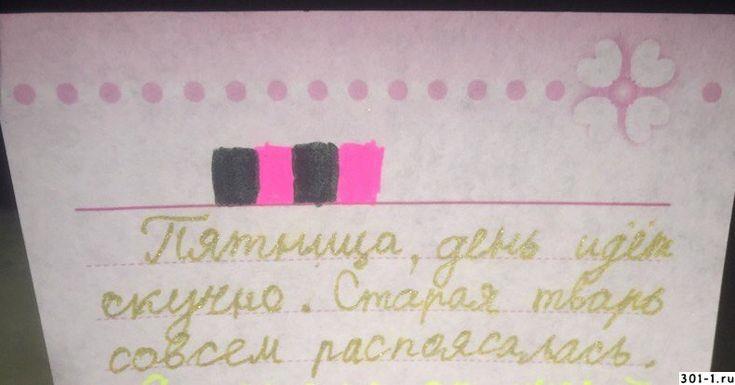 Пятница, день идёт
скучно. Старая тварь
совсем распоясалась.
301-1.ru